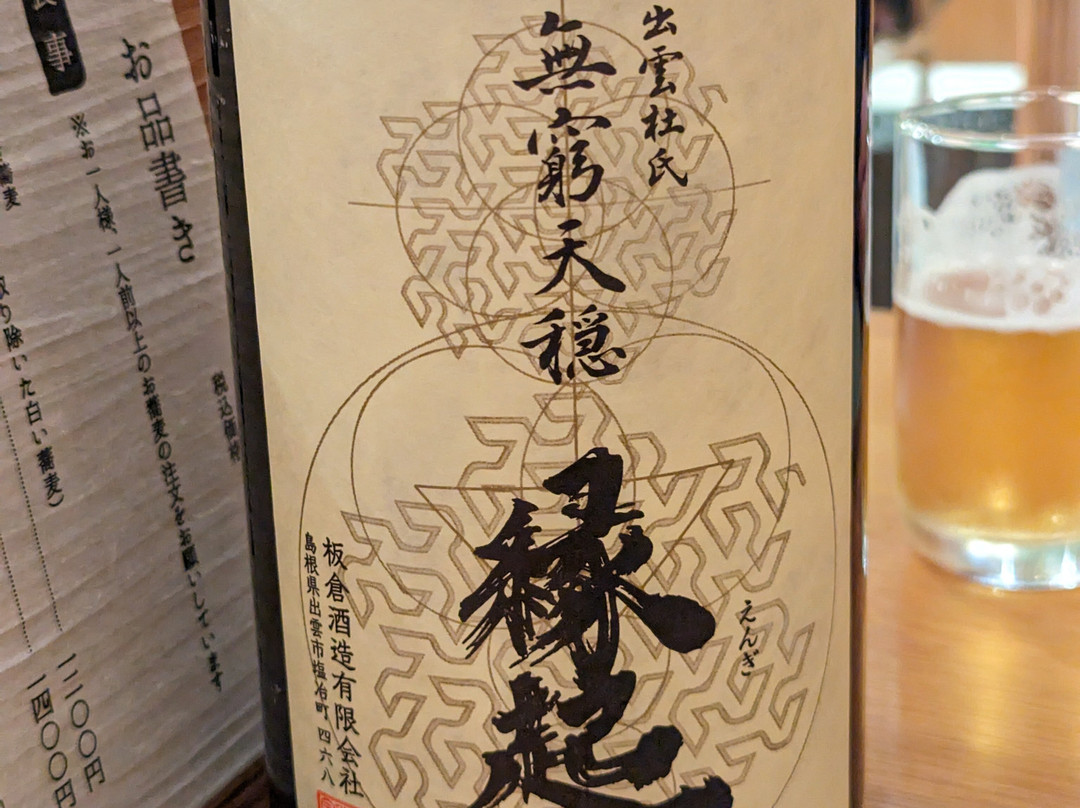 出雲杜氏
無窮天穏
縁起
えんぎ
板倉酒造有限会社
島根県出雲市塩冶町四六八
税込価格
お品書き
※お一人様、一人前以上のお蕎麦の注文をお願いしています
事
蕎麦
取り除いた白い蕎麦）
一一〇〇円
一四〇〇円